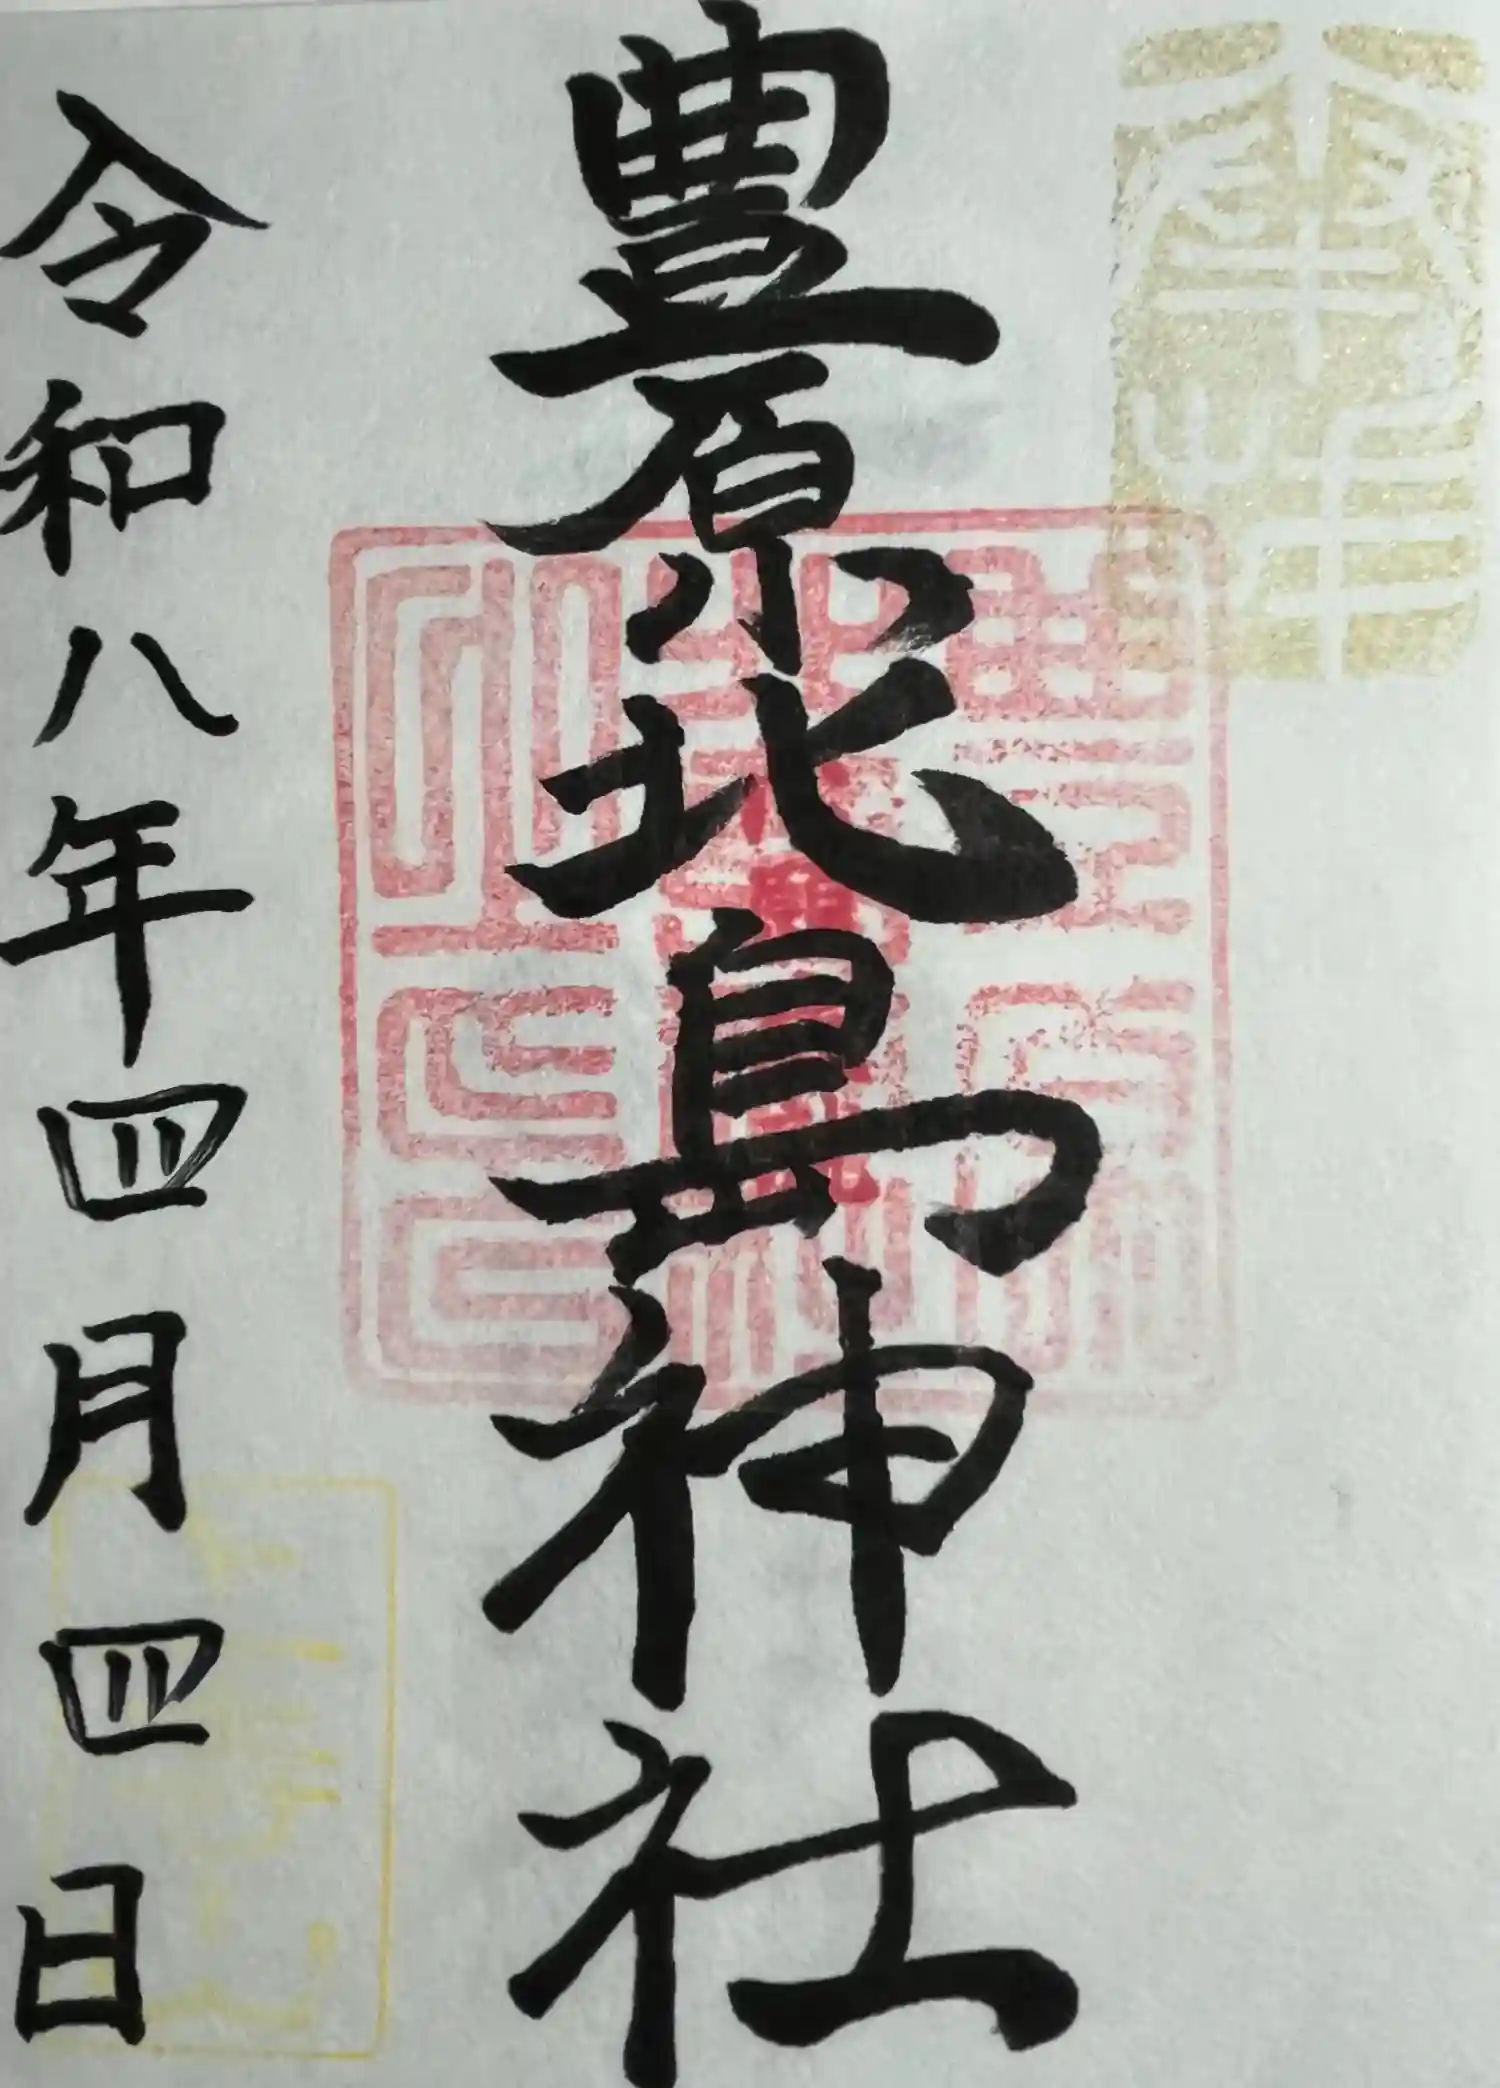 奉拝
豊原北島神社
令和八年四月四日